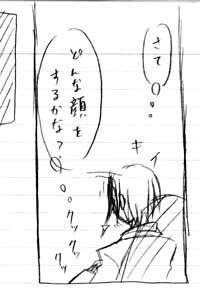 さて
どんな顔を
するかな?
キイ
クックックッ